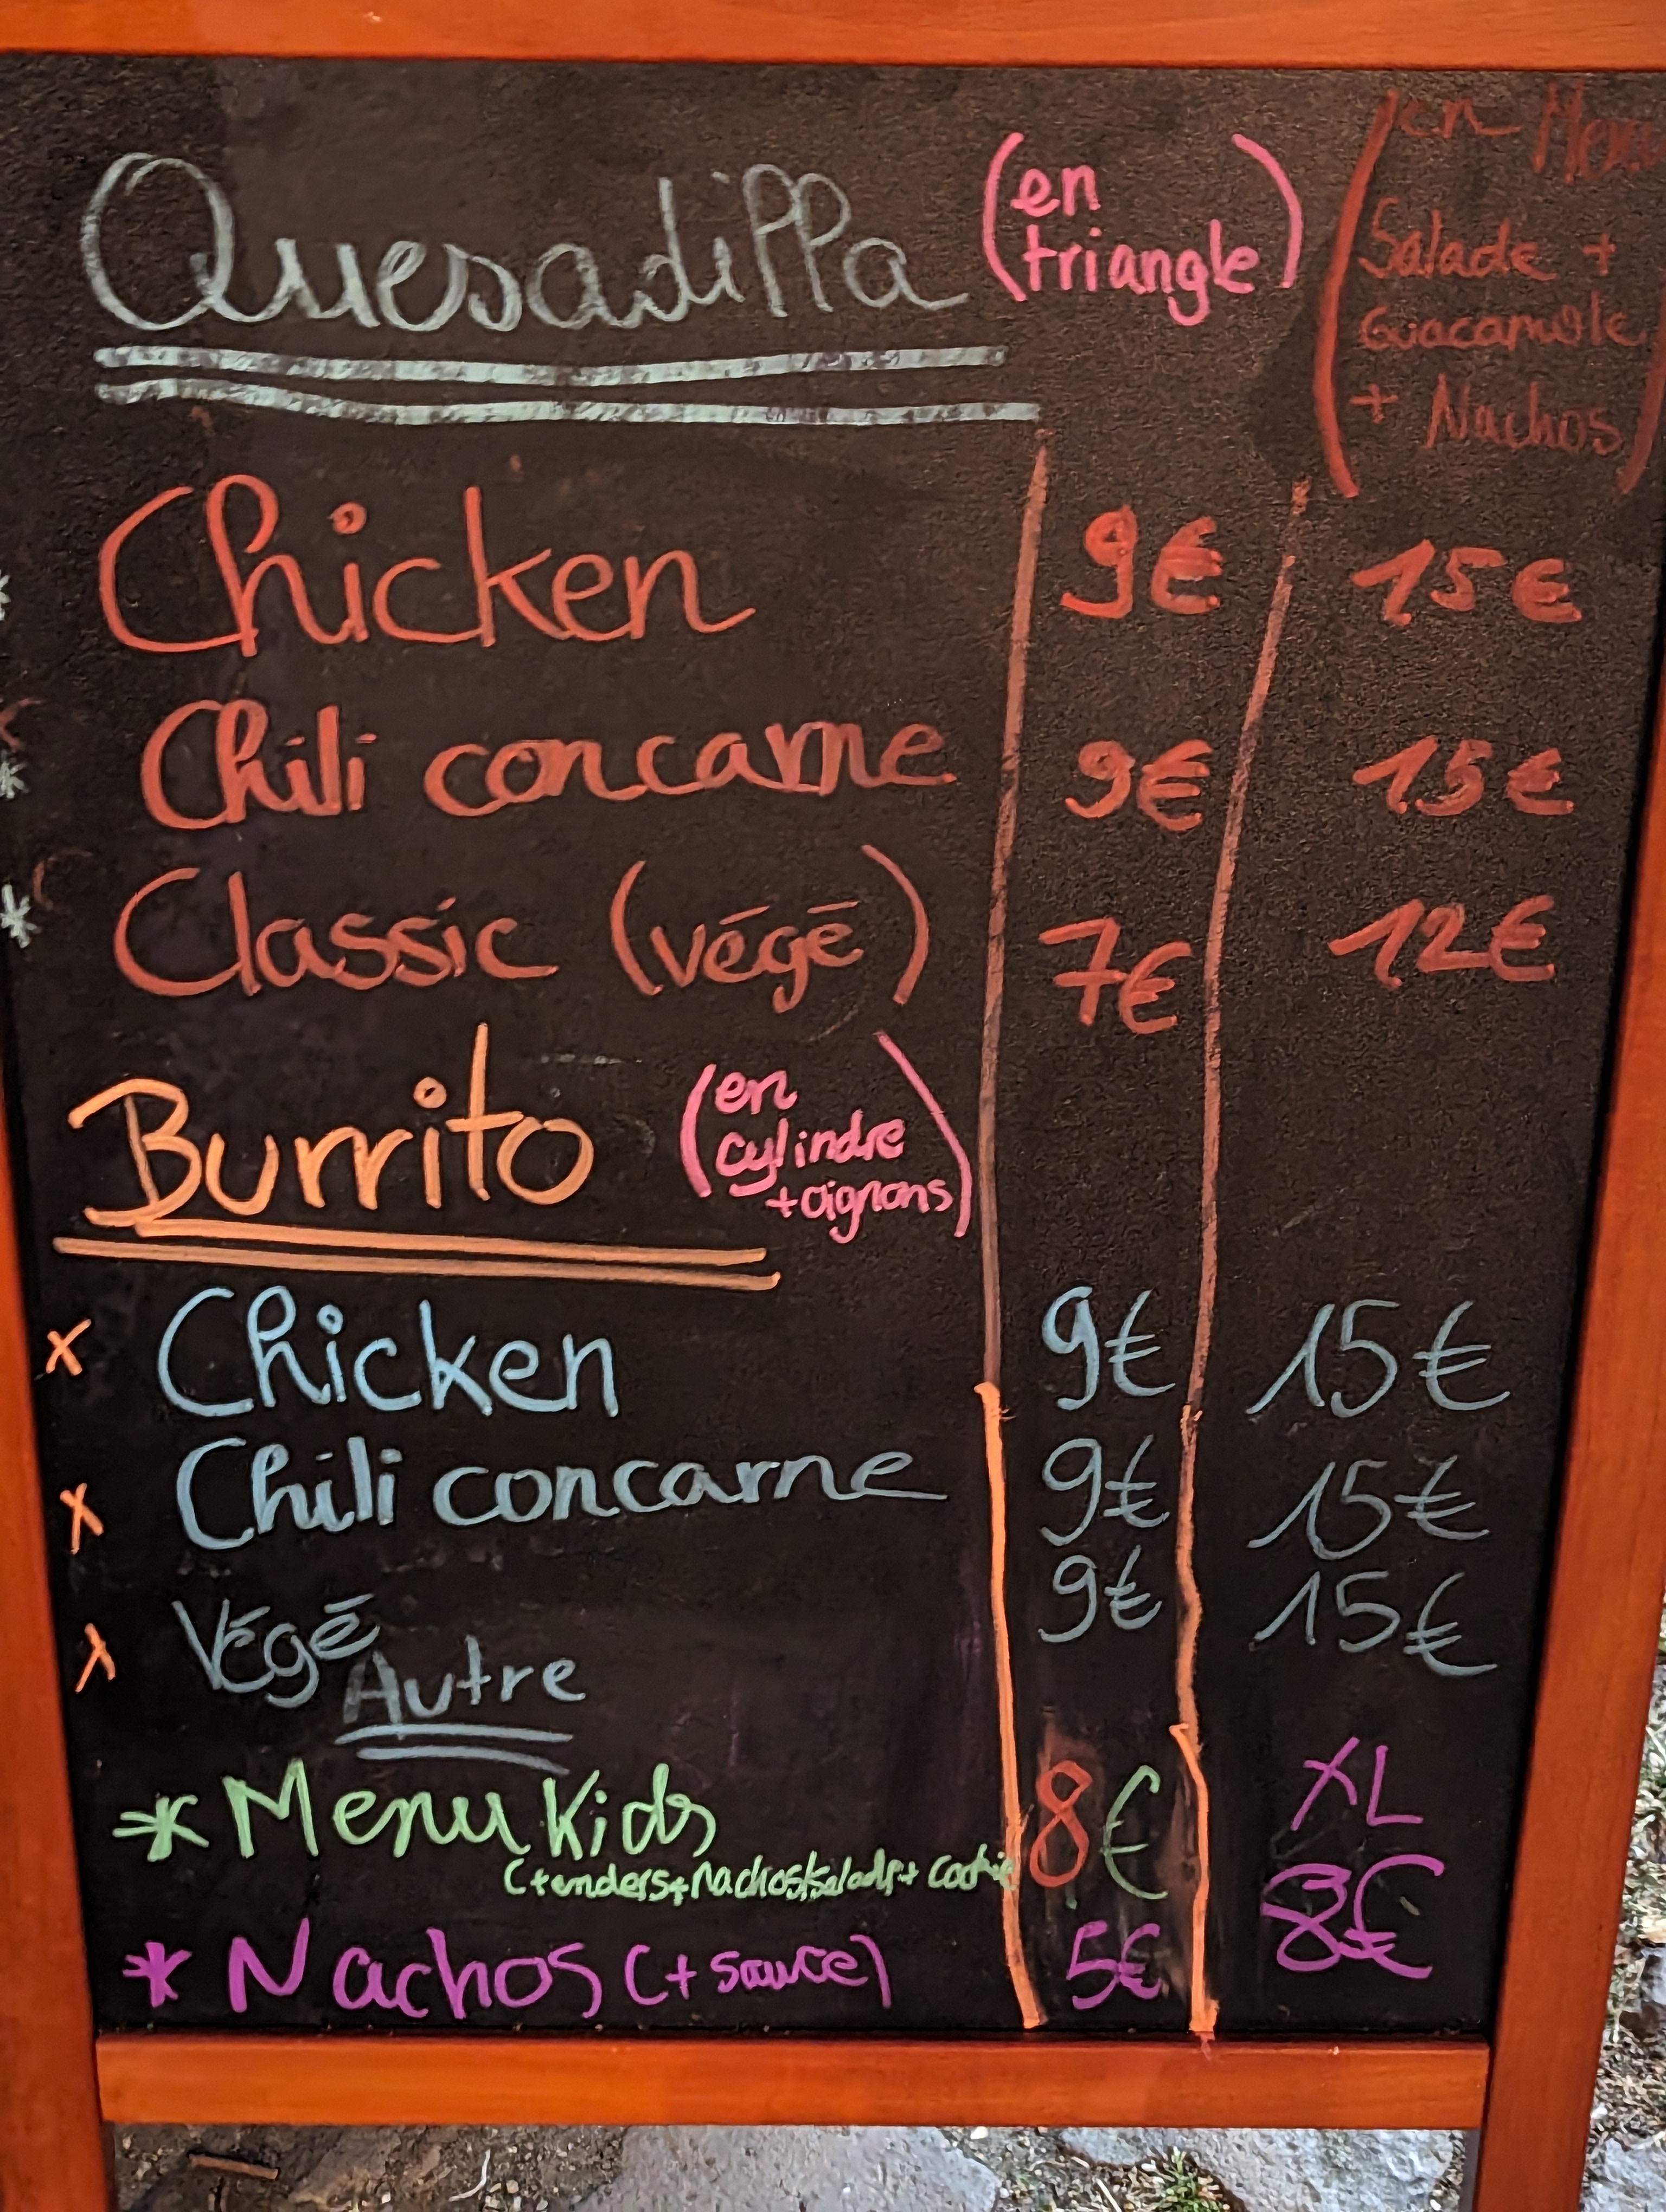 Quesadilla (en triangle)
(en Menu
Salade +
Guacamole
+ Nachos)
Chicken 9€ 15€
Chili concarne 9€ 15€
Classic (végé) 7€ 12€
Burrito (en
cylindre
+oignons)
x Chicken 9€ 15€
x Chili concarne 9€ 15€
x Végé 9€ 15€
Autre
* Menu Kids 8€
(tenders+Nachos+salade+ cookie
XL
* Nachos (+ sauce) 5€ 8€